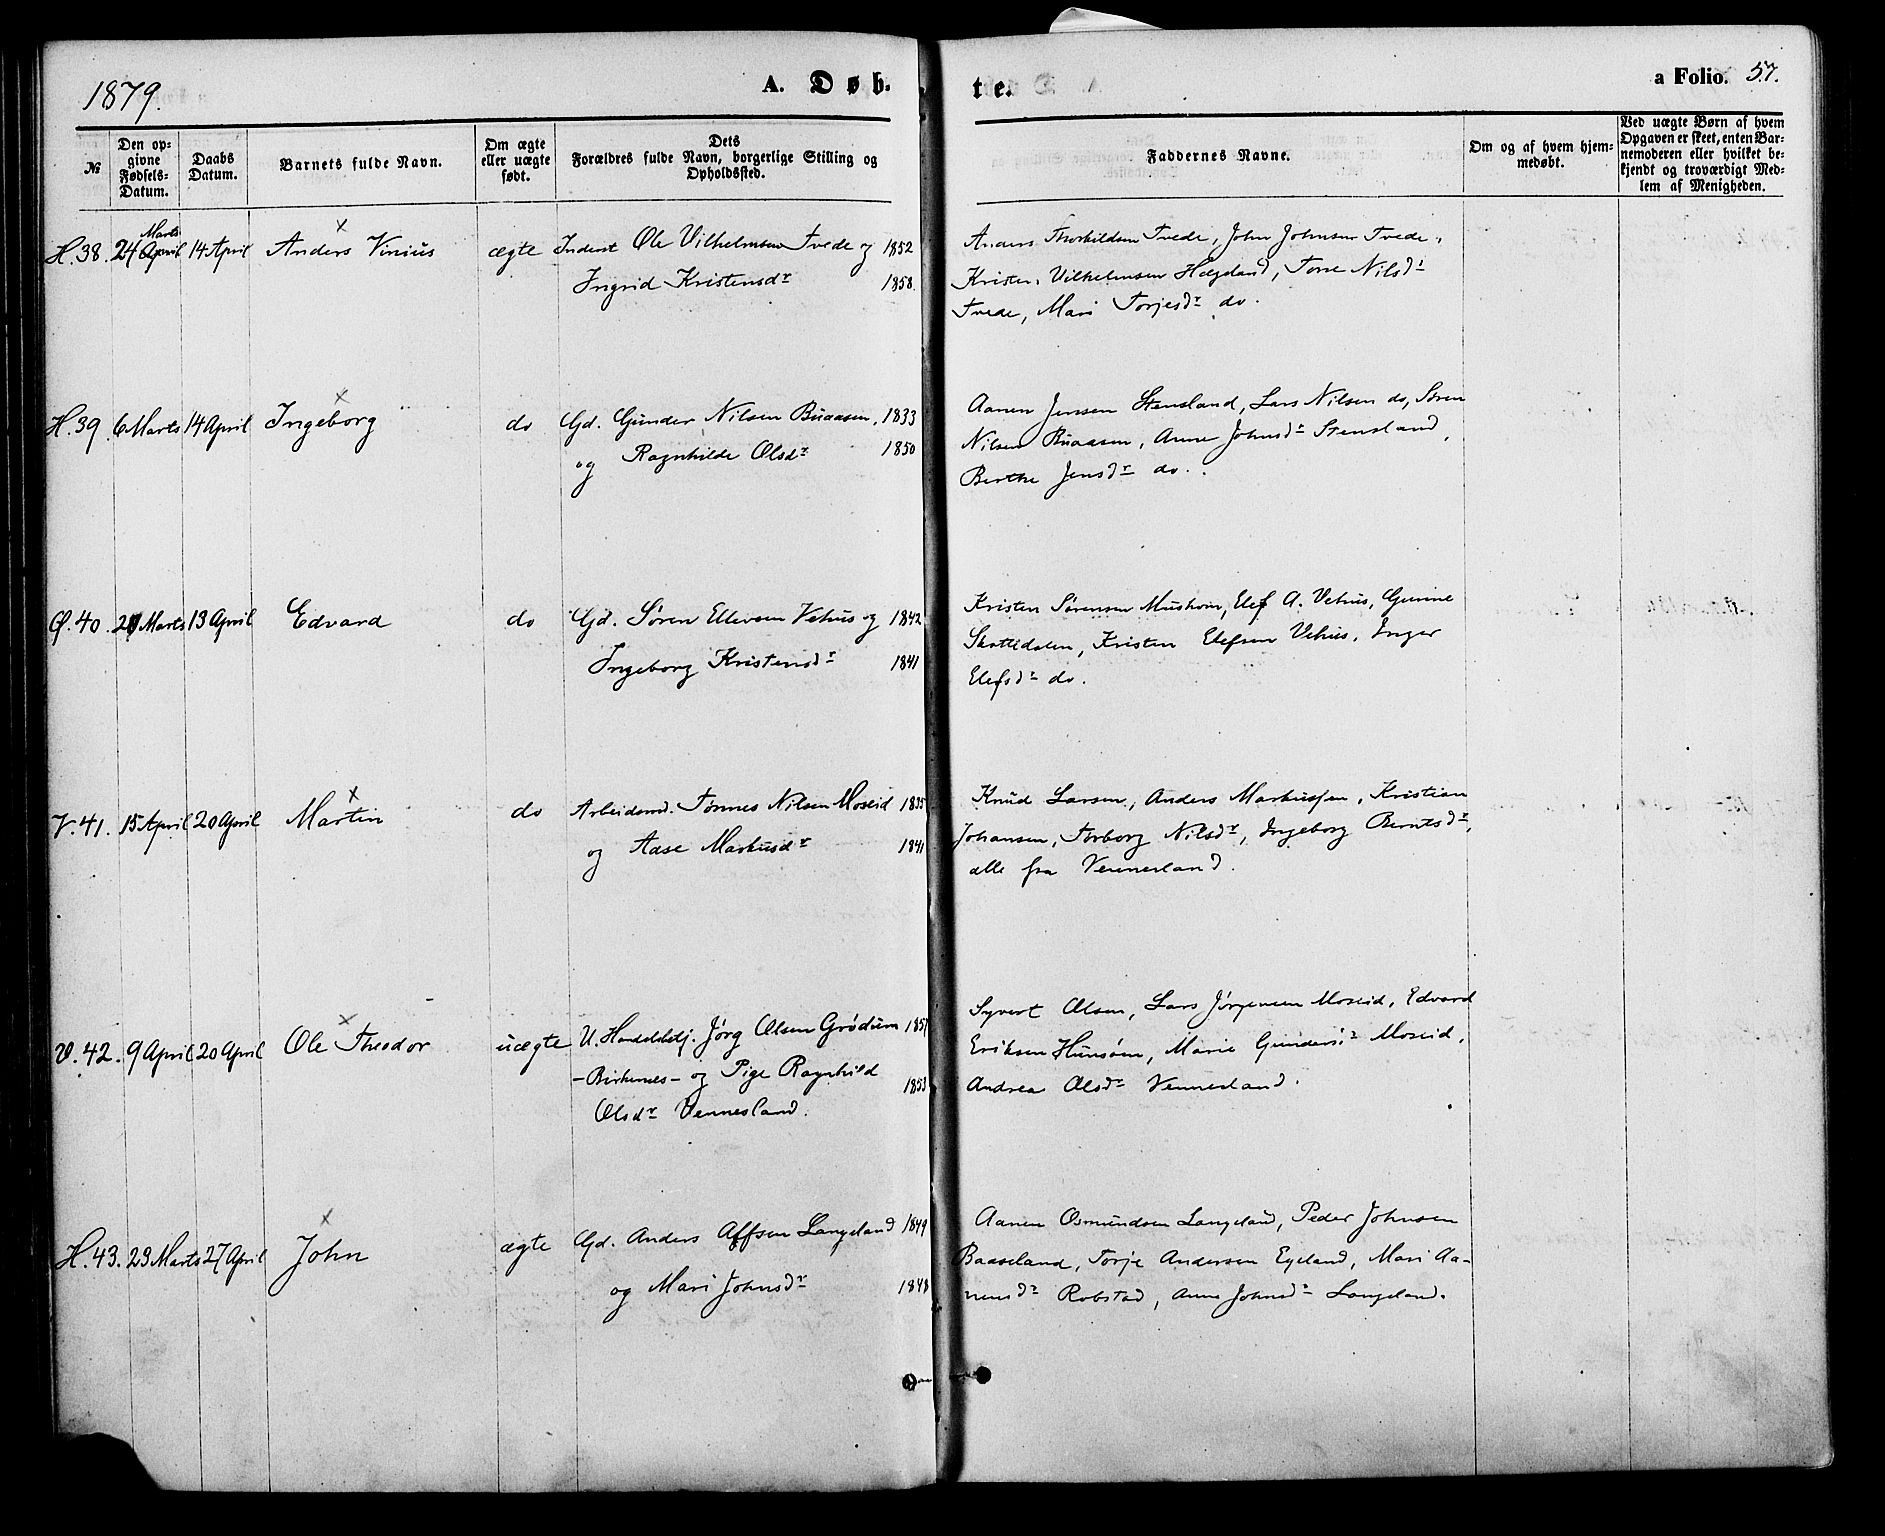 1879.
A. Døb-
te.
a Folio. 57.
№
Den opgivne Fødsels-Datum.
Daabs Datum.
Barnets fulde Navn.
Om ægte eller uægte født.
Dets Forældres fulde Navn, borgerlige Stilling og Opholdssted.
Faddernes Navne.
Om og af hvem hjemmedøbt.
Ved uægte Børn af hvem Opgaven er skeet, enten Barnemoderen eller hvilket bekjendt og troværdigt Medlem af Menigheden.
Marts
H. 38. 24 April 14 April Anders Vinius ægte Inderst Ole Vilhelmsen Tvede og 1852
Ingrid Kristensdr 1858.
Anders Thorkildsen Tvede, John Johnsen Tvede,
Kristen Vilhelmsen Hægeland, Tone Nilsdr
Tvede, Mari Torjesdr do.
H. 39. 6 Marts 14 April Ingeborg do Gd. Gunder Nilsen Buaasen, 1833
og Ragnhilde Olsdr 1850
Aanen Jenssen Stensland, Lars Nilsen do, Søren
Nilsen Buaasen, Anne Johnsdr Stensland,
Berthe Jensdr do.
Ø. 40. Marts 13 April Edvard do Gd. Søren Ellevsen Vehus og 1842
Ingeborg Kristensdr 1841
Kristen Sørensen Mushom, Elef A. Vehus, Gunne
Skottedalen, Kristen Elefsen Vehus, Inger
Elefsdr do.
V. 41. 15 April 20 April Martin do Arbeidsmd. Tønnes Nilsen Moseid 1835
og Aase Markusdr 1841
Knud Larsen, Anders Markussen, Kristian
Johansen, Torborg Nilsdr, Ingeborg Berntsdr,
alle fra Vennesland.
V. 42. 9 April 20 April Ole Theodor uægte U. Handelsbetj. Jørg Olsen Grødum 1857
-Birkenes- og Pige Ragnhild 1853
Olsdr Vennesland.
Syvert Olsen, Lars Jørgensen Moseid, Edvard
Eriksen Hunsøen, Marie Gundersdr Moseid,
Andrea Olsdr Vennesland.
H. 43. 23 Marts 27 April John ægte Gd. Anders Affsen Langeland 1849
og Mari Johnsdr 1848
Aanen Osmundsen Langeland, Peder Johnsen
Baaseland, Torje Andersen Egeland, Mari Aa-
nensdr Robstad, Anne Johnsdr Langeland.